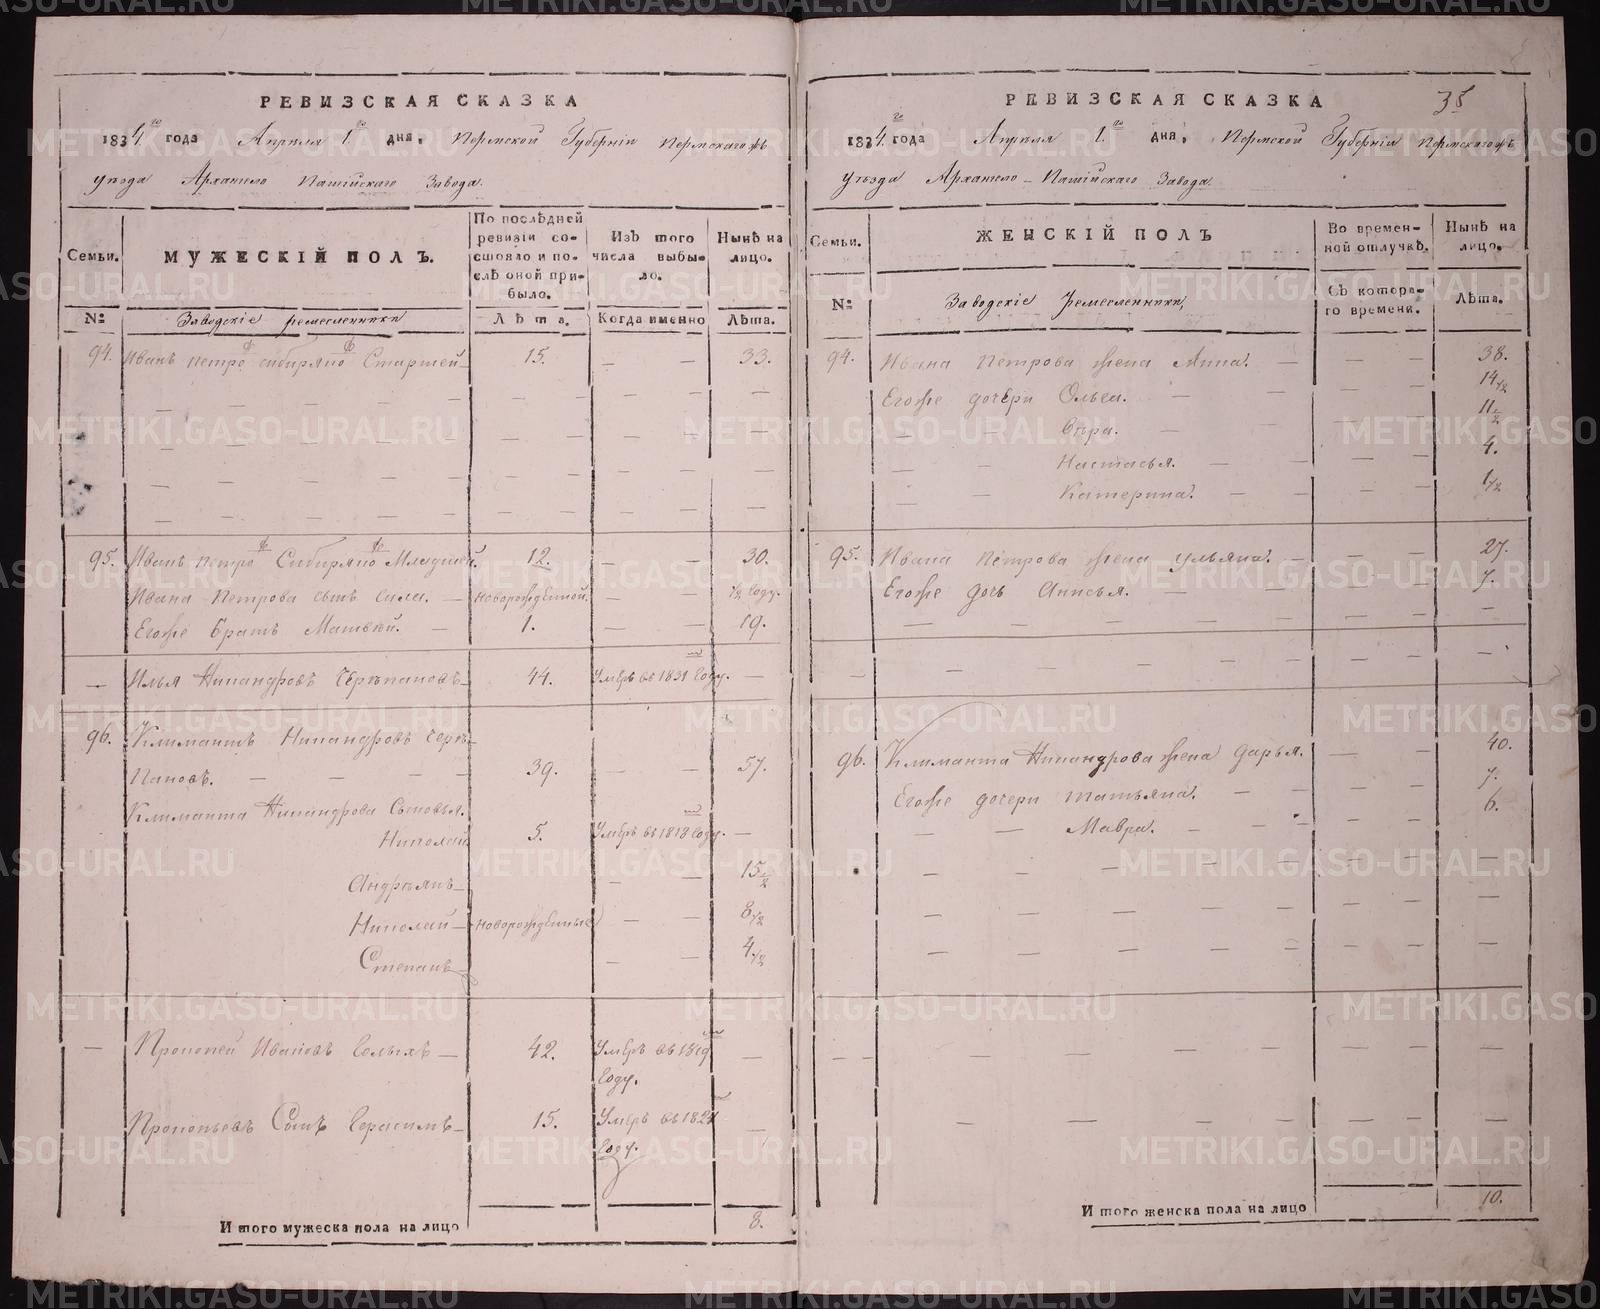 РЕВИЗСКАЯ СКАЗКА
1834го года Апреля 1го дня, Пермской Губернiи Пермскагожъ
уѣзда Архангело Пашiйскаго Завода.
Семьи. МУЖЕСКIЙ ПОЛЪ. По послѣдней ревизiи состояло и послѣ оной прибыло. Изъ того числа выбыло. Нынѣ на лицо.
№ Заводскiе ремесленники Лѣта. Когда именно Лѣта.
94. Иванъ Петровъ Сибиряковъ Старшей 15. — — 33.
95. Иванъ Петровъ Сибиряковъ Младшей. 12. — — 30.
Ивана Петрова сынъ Сила. — новорожденной. — — 1/2 году.
Егоже братъ Матвѣй. — 1. — — 19.
— Илья Никандровъ Черепановъ 44. Умеръ въ 1831м году. —
96. Климантъ Никандровъ Чере-
пановъ. — — — 39. — — 57.
Климанта Никандрова Сыновья.
Николай 5. Умеръ въ 1818м году. —
Андреянъ — — 15 1/2
Николай новорожденные — — 8 1/2
Степанъ — — 4 1/2
— Прокопей Ивановъ — 42. Умеръ въ 1819м —
году.
Прокопьевъ Сынъ Герасимъ 15. Умеръ въ 1821м —
году.
И того мужеска пола на лицо 8.
38
РЕВИЗСКАЯ СКАЗКА
1834го года Апреля 1го дня, Пермской Губернiи Пермскагожъ
уѣзда Архангело-Пашiйскаго Завода.
Семьи. ЖЕНСКIЙ ПОЛЪ Во временной отлучкѣ. Нынѣ на лицо.
№ Заводскiе ремесленники, Съ котораго времени. Лѣта.
94. Ивана Петрова жена Анна. — — — 38.
Егоже дочери Ольга. — — — — 14 1/2
Вѣра. — — — 11 1/2
Настасья. — — — 4.
Катерина. — — — — 1/2
95. Ивана Петрова жена Ульяна. — — — 27.
Егоже дочь Анисья. — — — — 7.
96. Климанта Никандрова жена Дарья. — — 40.
Егоже дочери Татьяна. — — — — 7.
Мавра. — — — — 6.
И того женска пола на лицо 10.